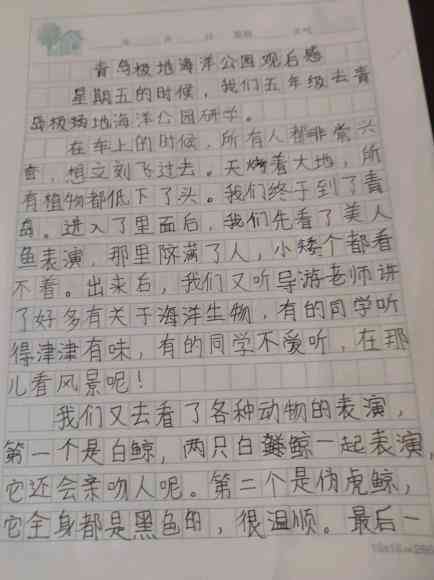 青岛极地海洋公园观后感
星期五的时候，我们五年级去青
岛极地海洋公园研学。
在车上的时候，所有人都非常兴
奋，想立刻飞过去。天烤着大地，所
有植物都低下了头。我们终于到了青
岛。进入了里面后，我们先看了美人
鱼表演，那里挤满了人，小矮个都看
不着。出来后，我们又听导游老师讲
了好多有关于海洋生物，有的同学听
得津津有味，有的同学不爱听，在那
儿看风景呢！
我们又去看了各种动物的表演，
第一个是白鲸，两只白鲸一起表演，
它还会亲吻人呢。第二个是伪虎鲸，
它全身都是黑色的，很温顺。最后一